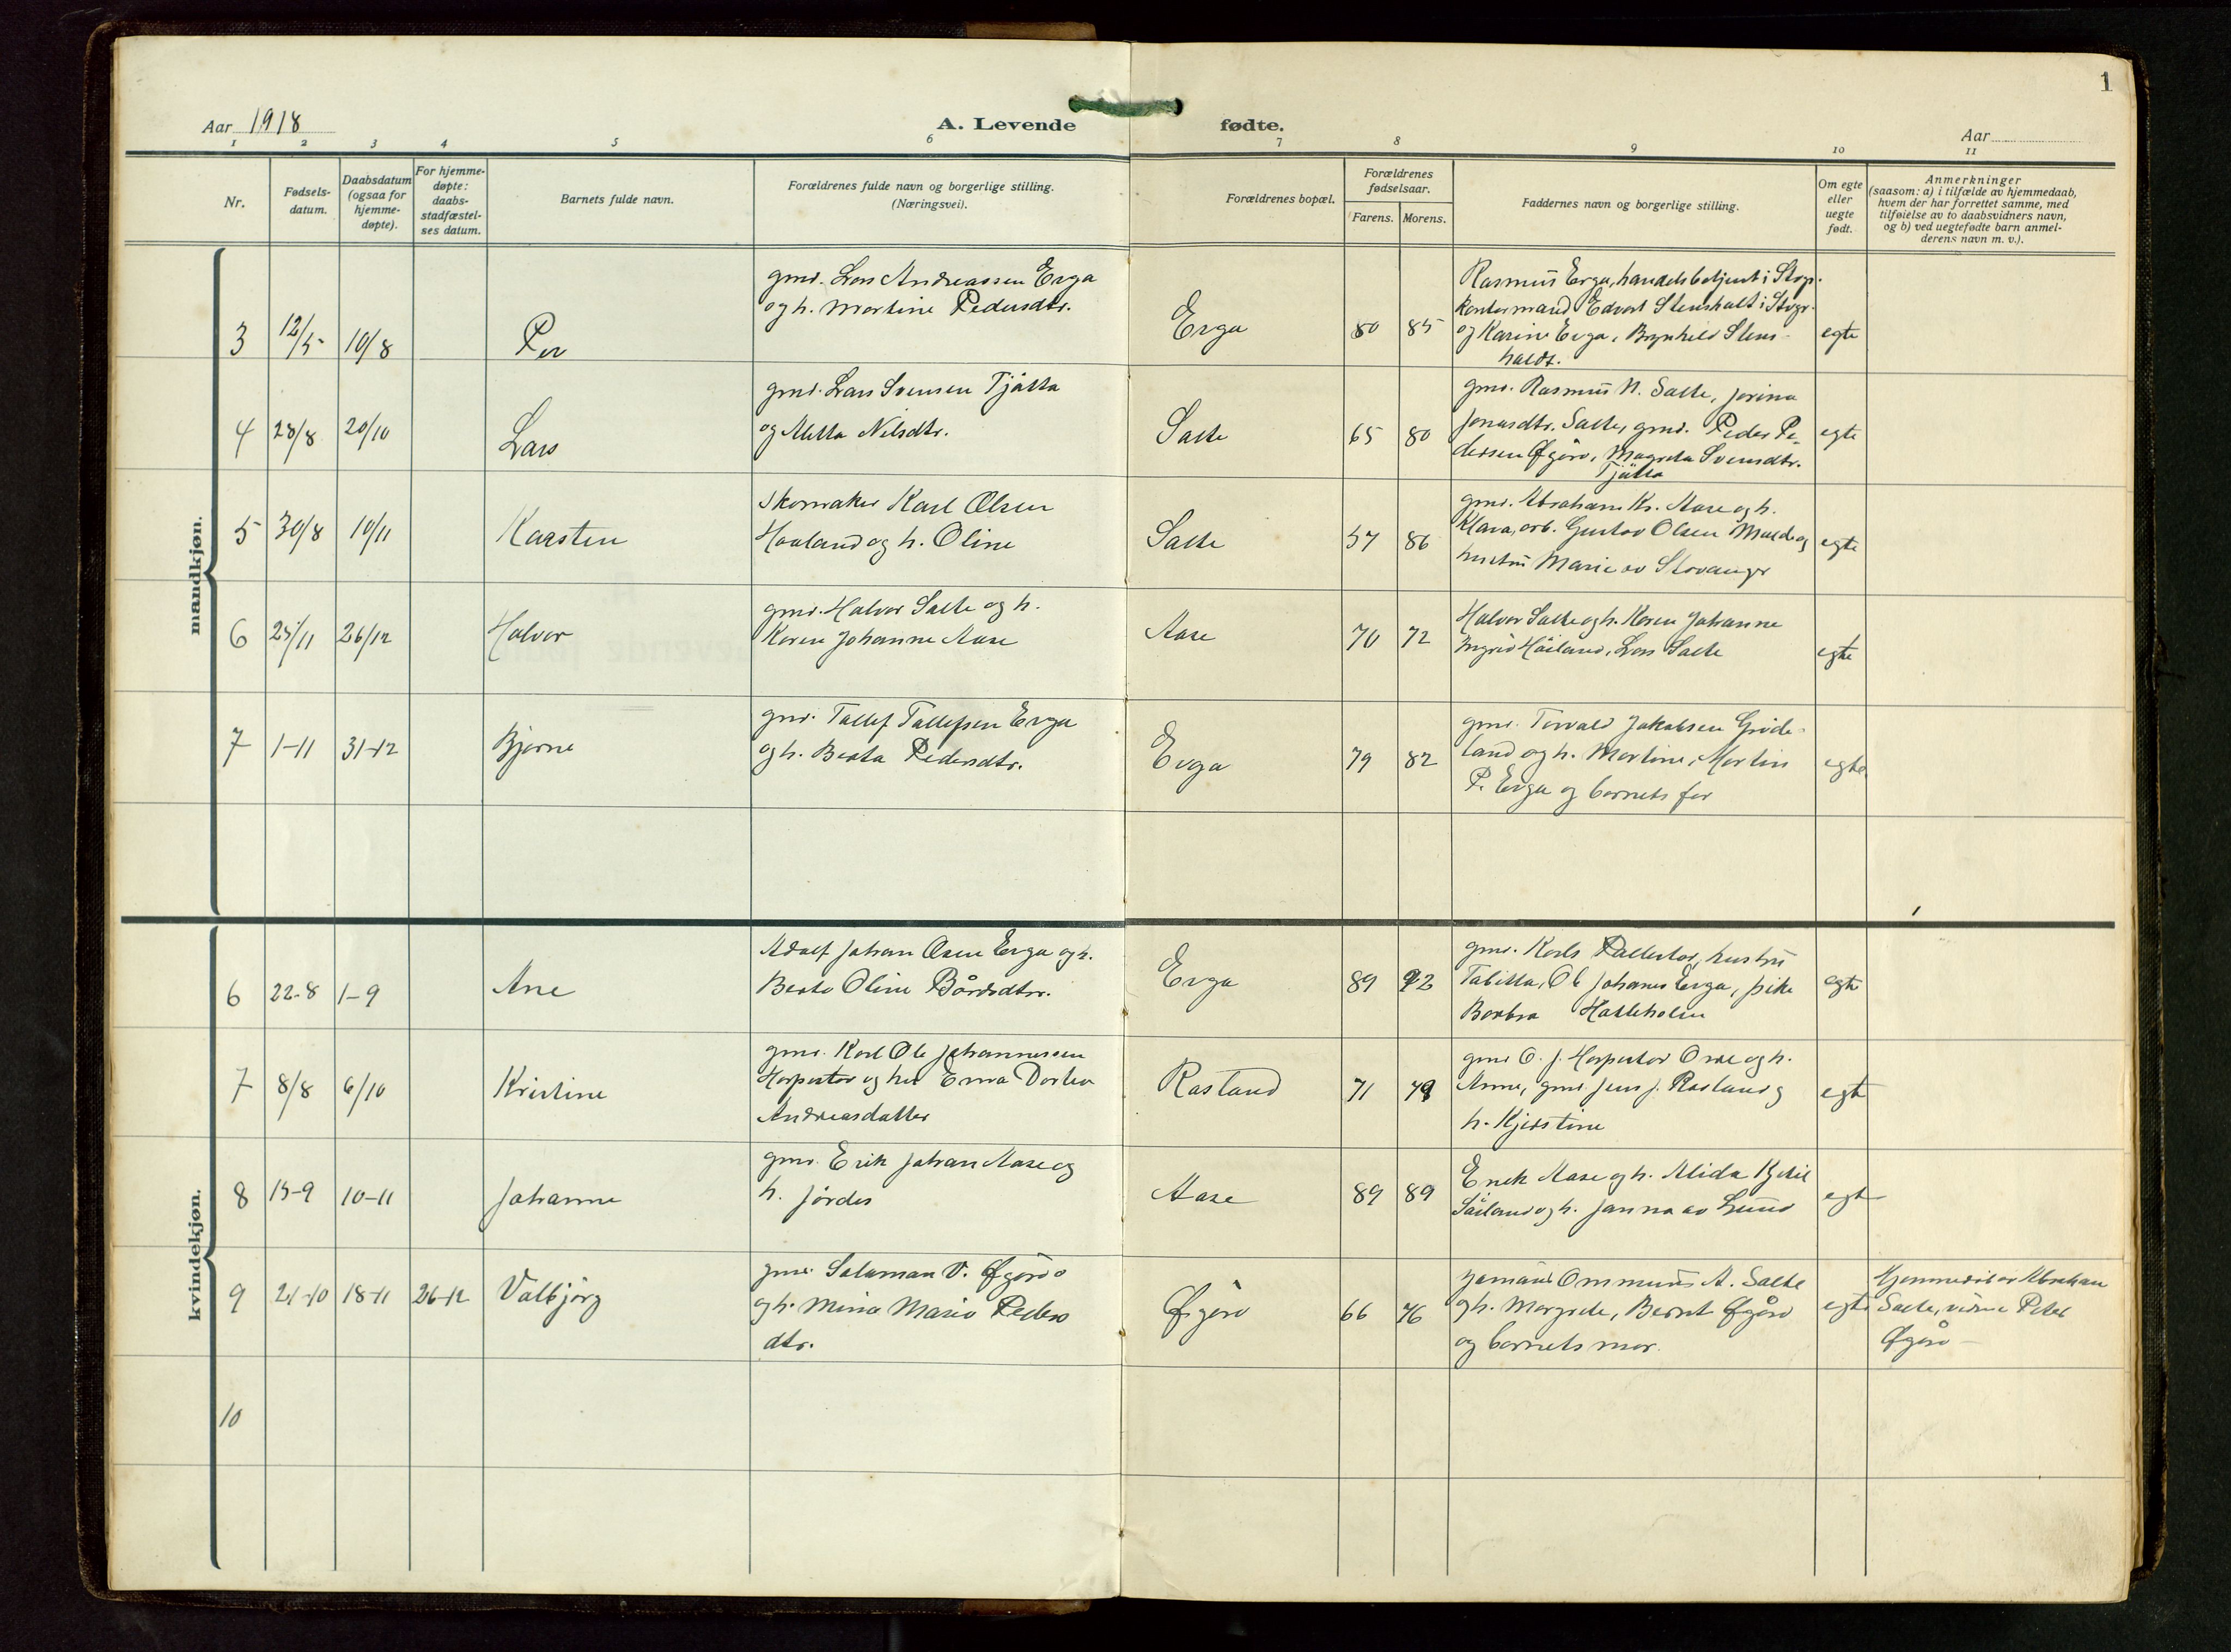 1
Aar 1918
A. Levende fødte.
Aar
1 2 3 4 5 6 7 8 9 10 11
Nr.
Fødsels-
datum.
Daabsdatum
(ogsaa for
hjemme-
døpte).
For hjemme-
døpte:
daabs-
stadfæstel-
ses datum.
Barnets fulde navn.
Forældrenes fulde navn og borgerlige stilling.
(Næringsvei).
Forældrenes bopæl.
Forældrenes
fødselsaar.
Farens. Morens.
Faddernes navn og borgerlige stilling.
Om egte
eller
uegte
født.
Anmerkninger
(saasom: a) i tilfælde av hjemmedaab,
hvem der har forrettet samme, med
tilføielse av to daabsvidners navn,
og b) ved uegtefødte barn anmel-
derens navn m. v.).
mandkjøn.
3 12/5 10/8 Per
gmd. Lars Andreassen Erga
og h. Martine Pedersdtr.
Erga 80 85
Rasmus Erga, handelsbetjent i Stvgr.
kontormand Edvart Stenshalt i Stvgr.
og Karine Erga, Brynhild Stens-
haldt.
egte
4 28/8 20/10 Lars
gmd. Lars Svensen Tjåtta
og Metta Nilsdtr.
Salte 65 80
gmd. Rasmus N. Salte, Jorina
Jonasdtr. Salte, gmd. Peder Pe-
dersen Øgård, Magreta Svensdtr.
Tjåtta
egte
5 30/8 10/11 Karsten
Skomaker Karl Olsen
Haaland og h. Oline
Salte 57 86
gmd. Abraham Kr. Aase og h.
Klara, arb. Gustav Olsen Mulde og
hustru Marie av Stavanger
egte
6 25/11 26/12 Halvor
gmd. Halvor Salte og h.
Karen Johanne Aase
Aase 70 72
Halvor Salte og h. Karen Johanne
Ingrid Håiland, Lars Salte
egte
7 1-11 31-12 Bjarne
gmd. Tallef Tallefsen Erga
og h. Berta Pedersdtr.
Erga 79 82
gmd. Torvald Jakobsen Grøde-
land og h. Martine, Martin
P. Erga og barnets far
egte
kvindekjøn.
6 22-8 1-9 Ane
Adolf Johan Osen Erga og h.
Berta Oline Bårdsdtr.
Erga 89 92
gmd. Karls Pallestad, hustru
Tabitta, Ole Johanes Erga, pike
Barbra Hatleholen
egte
7 8/8 6/10 Kristine
gmd. Karl Ole Johannessen
Horpestad og hu Enna Dortea
Andreasdatter
Rosland 71 79
gmd O. J. Horpestad Orre og h.
Anne, gmd. Jens J. Rosland og
h. Kjerstine
egte
8 15-9 10-11 Johanne
gmd. Erik Johan Aase og
h. Jordis
Aase 89 89
Enok Aase og h. Alida Kjetil
Såland og h. Janna av Lund
egte
9 21-10 18-11 26-12 Valbjørg
gmd. Salaman V. Øgård
og h. Mina Maria Peders
dtr.
Øgård 66 76
gamand Ommund A. Salte
og h. Margrete, Bernt Øgård
og barnets mor.
egte
Hjemmedøbt av Abraham
Salte, vidne Peter
Øgård
10